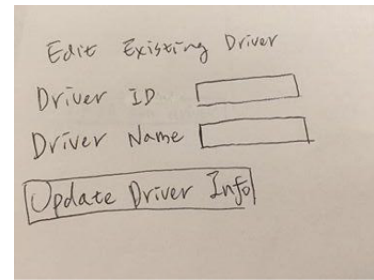 Edit Existing Driver
Driver ID
Driver Name
Update Driver Info